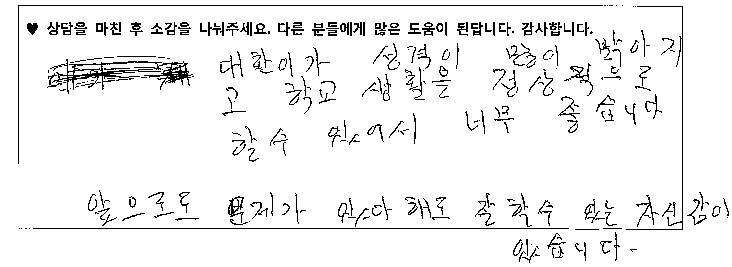 ♥ 상담을 마친 후 소감을 나눠주세요. 다른 분들에게 많은 도움이 된답니다. 감사합니다.
대한이가 성격이 많이 밝아지
고 학교 생활을 정상적으로
할수 있어서 너무 좋습니다
앞으로도 문제가 있다해도 잘 할수 있는 자신감이
있습니다.